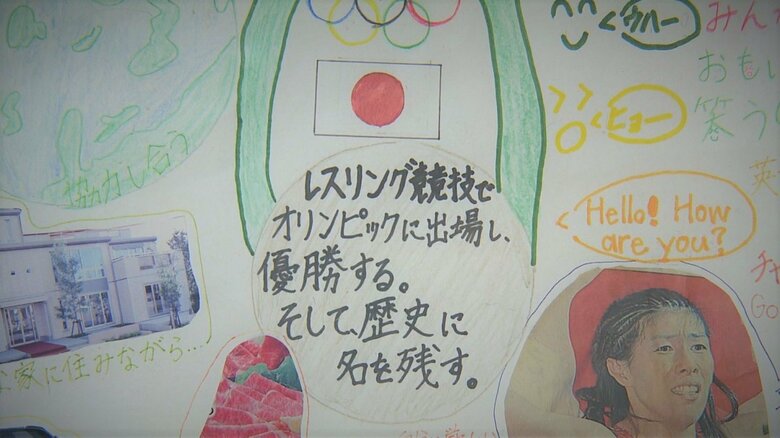 協力し合う
ウハー
みん
おもし
笑う
ヒョー
レスリング競技で
オリンピックに出場し、
優勝する。
そして、歴史に
名を残す。
Hello! How
are you?
英
Go
家に住みながら…